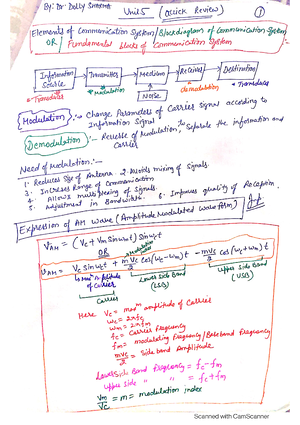 By: Dr Dolly Sharma
Unit 5 (Quick Review)
1
Elements of Communication System/Blockdiagram of Communication System
OR/ Fundamental blocks of Communication System
Information Source → Transmitter → Medium → Receiver → Destination
* Transducer * Modulation Noise demodulation * Transducer
Modulation :- Change Parameters of Carrier signal according to
Information Signal
Demodulation :- Reverse of Modulation, To Separate the information and
Carrier
Need of Modulation:-
1. Reduces Size of Antenna 2. Avoids mixing of signals.
3. Increases Range of Communication
4. Allows multiplexing of signals.
5. Adjustment in Bandwidth. 6. Improves quality of Reception
Expression of AM wave (Amplitude Modulated waveform)
VAM = (Vc + Vm Sinωmt) Sinωct
OR
VAM = Vc Sinωct + mVc/2 cos(ωc-ωm)t - mVc/2 cos(ωc+ωm)t
Modulation
Maxm Amplitude of Carrier
Carrier
Lower Side Band (LSB)
Upper Side Band (USB)
Here Vc = maxm amplitude of Carrier
ωc = 2πfc
ωm = 2πfm
fc = Carrier frequency
fm = modulating frequency/Baseband frequency
mVc/2 = Side band Amplitude
Lower Side Band frequency = fc - fm
Upper side " " = fc + fm
Vm/Vc = m = modulation index
Scanned with CamScanner